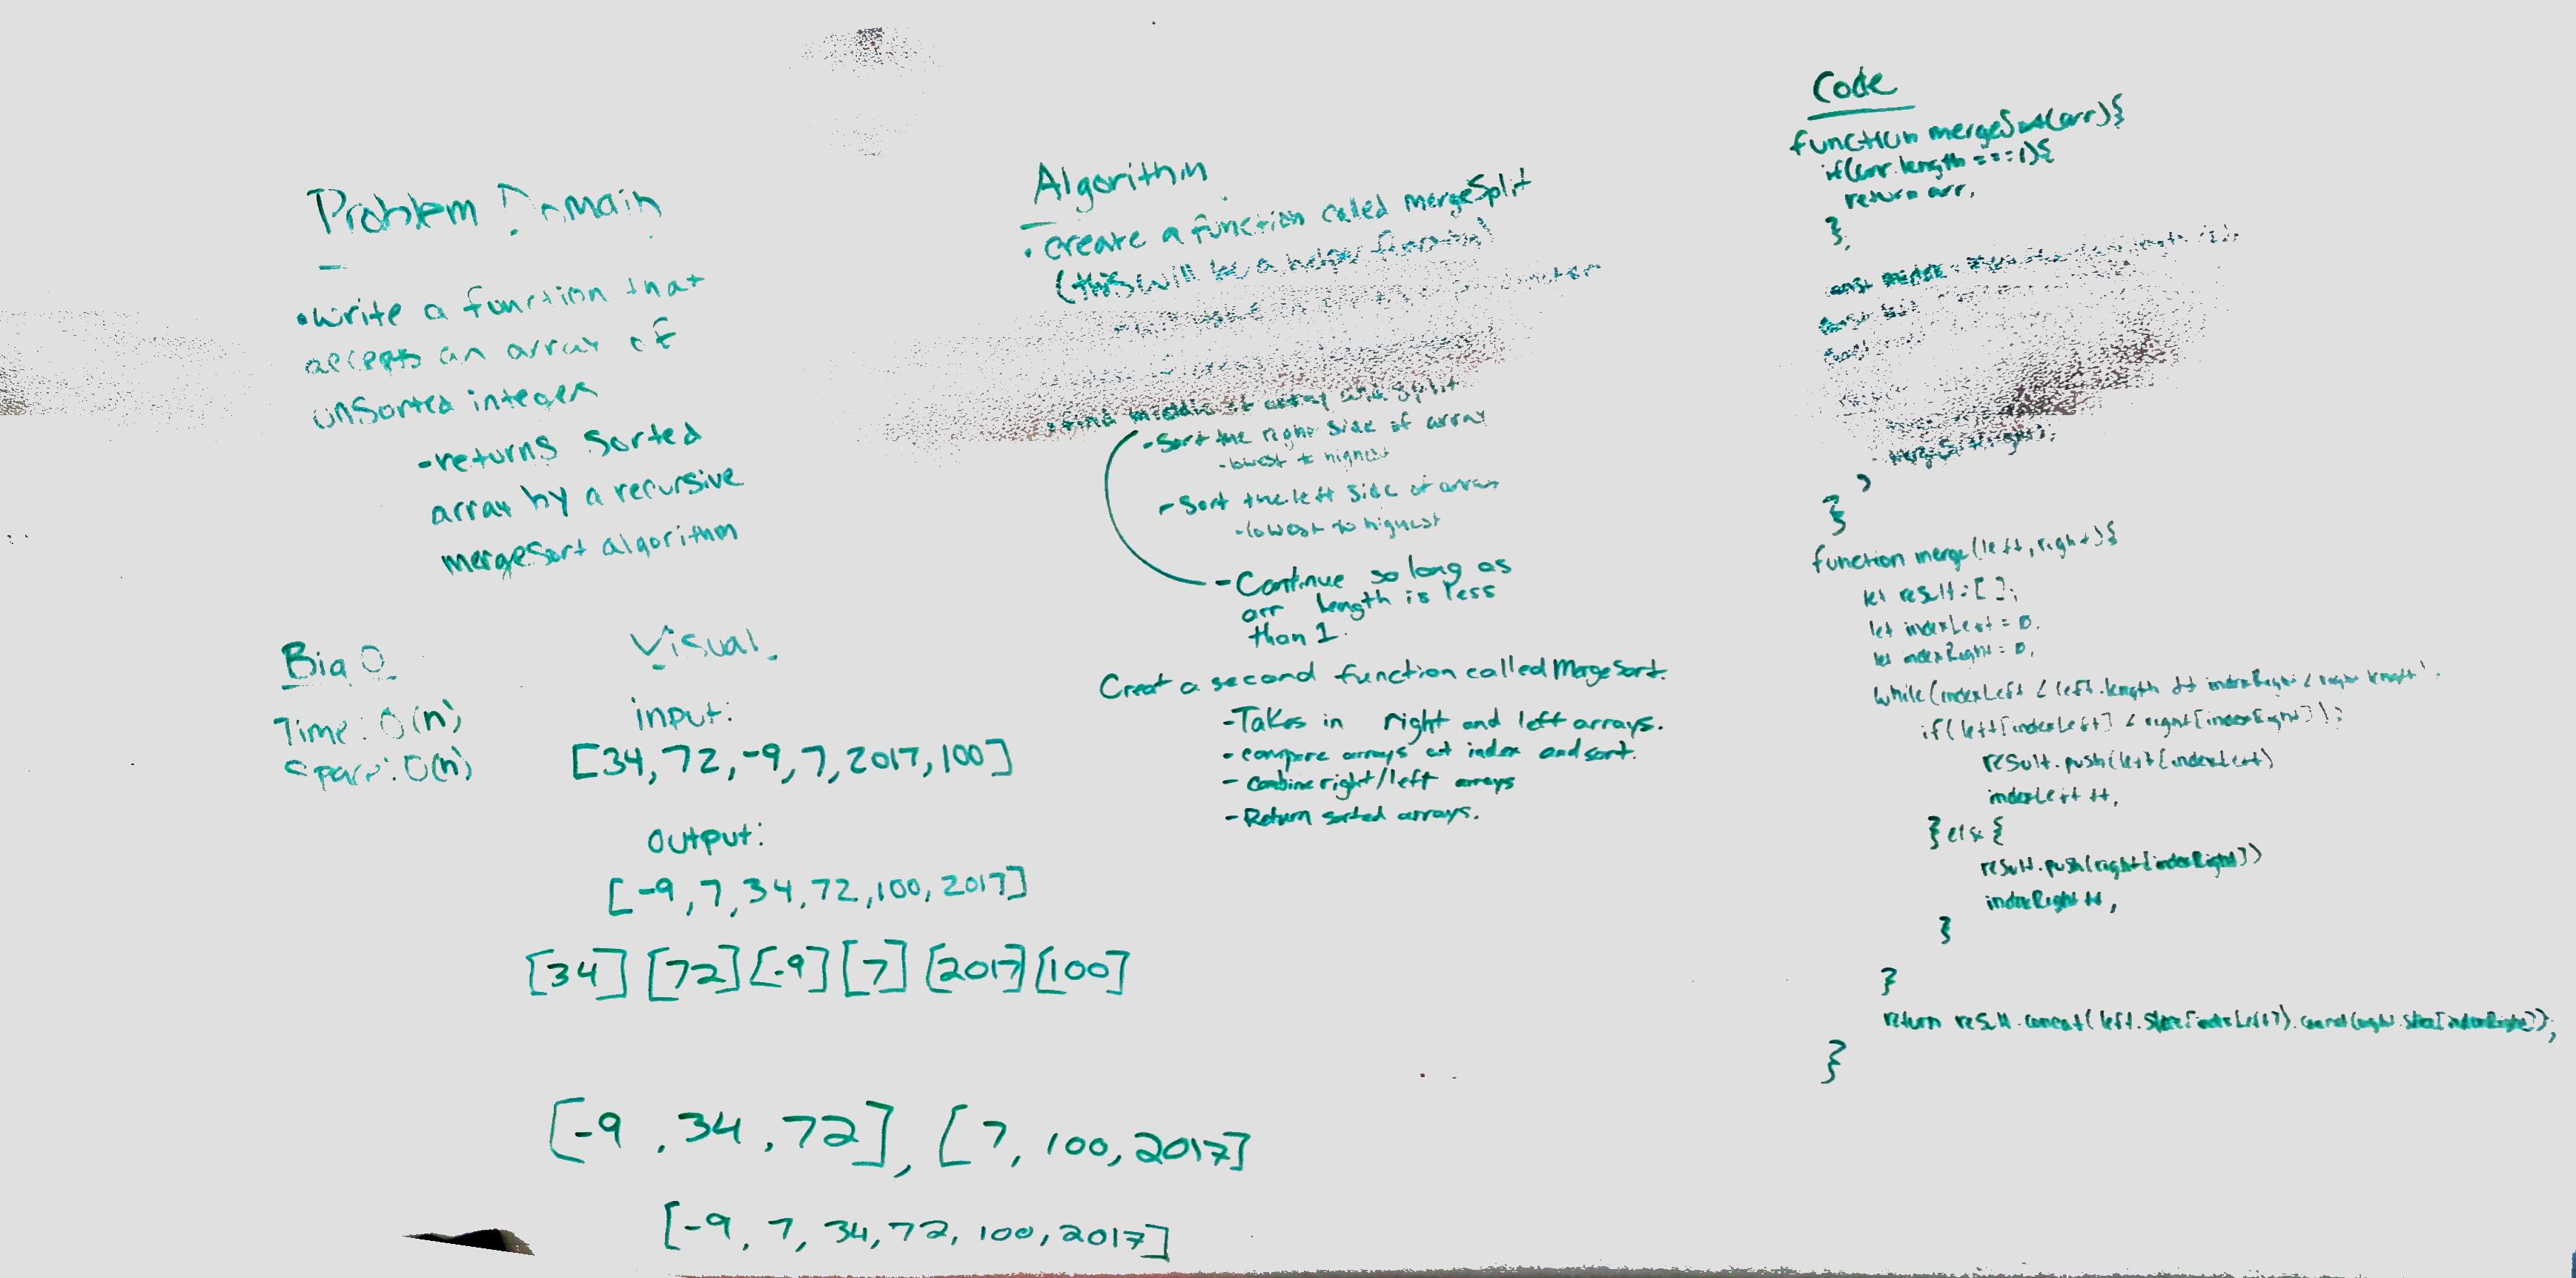 Problem Domain
• Write a function that
accepts an array of
unsorted integers
- returns sorted
array by a recursive
mergeSort algorithm
Big O
Time: O(n)
Space: O(n)
Visual
input:
[34, 72, -9, 7, 2017, 100]
output:
[-9, 7, 34, 72, 100, 2017]
[34] [72] [-9] [7] [2017] [100]
[-9, 34, 72], [7, 100, 2017]
[-9, 7, 34, 72, 100, 2017]
Algorithm
• create a function called mergeSplit
(this will be a helper function)
• find middle of array and split
- Sort the right side of array
- lowest to highest
- Sort the left side of array
- lowest to highest
- Continue so long as
arr length is less
than 1.
Creat a second function called MergeSort.
- Takes in right and left arrays.
- compare arrays at index and sort.
- Combine right/left arrays
- Return sorted arrays.
Code
function mergeSort(arr){
if(arr.length === 1){
return arr;
};
const middle =
}
function merge(left, right){
let result = [];
let indexLeft = 0;
let indexRight = 0;
while(indexLeft < left.length && indexRight < right.length
if(left[indexLeft] < right[indexRight]){
result.push(left[indexLeft)
indexLeft ++;
} else {
result.push(right[indexRight])
indexRight ++;
}
}
return result.concat(left.slice[indexLeft]).concat(right.slice[indexRight]);
}